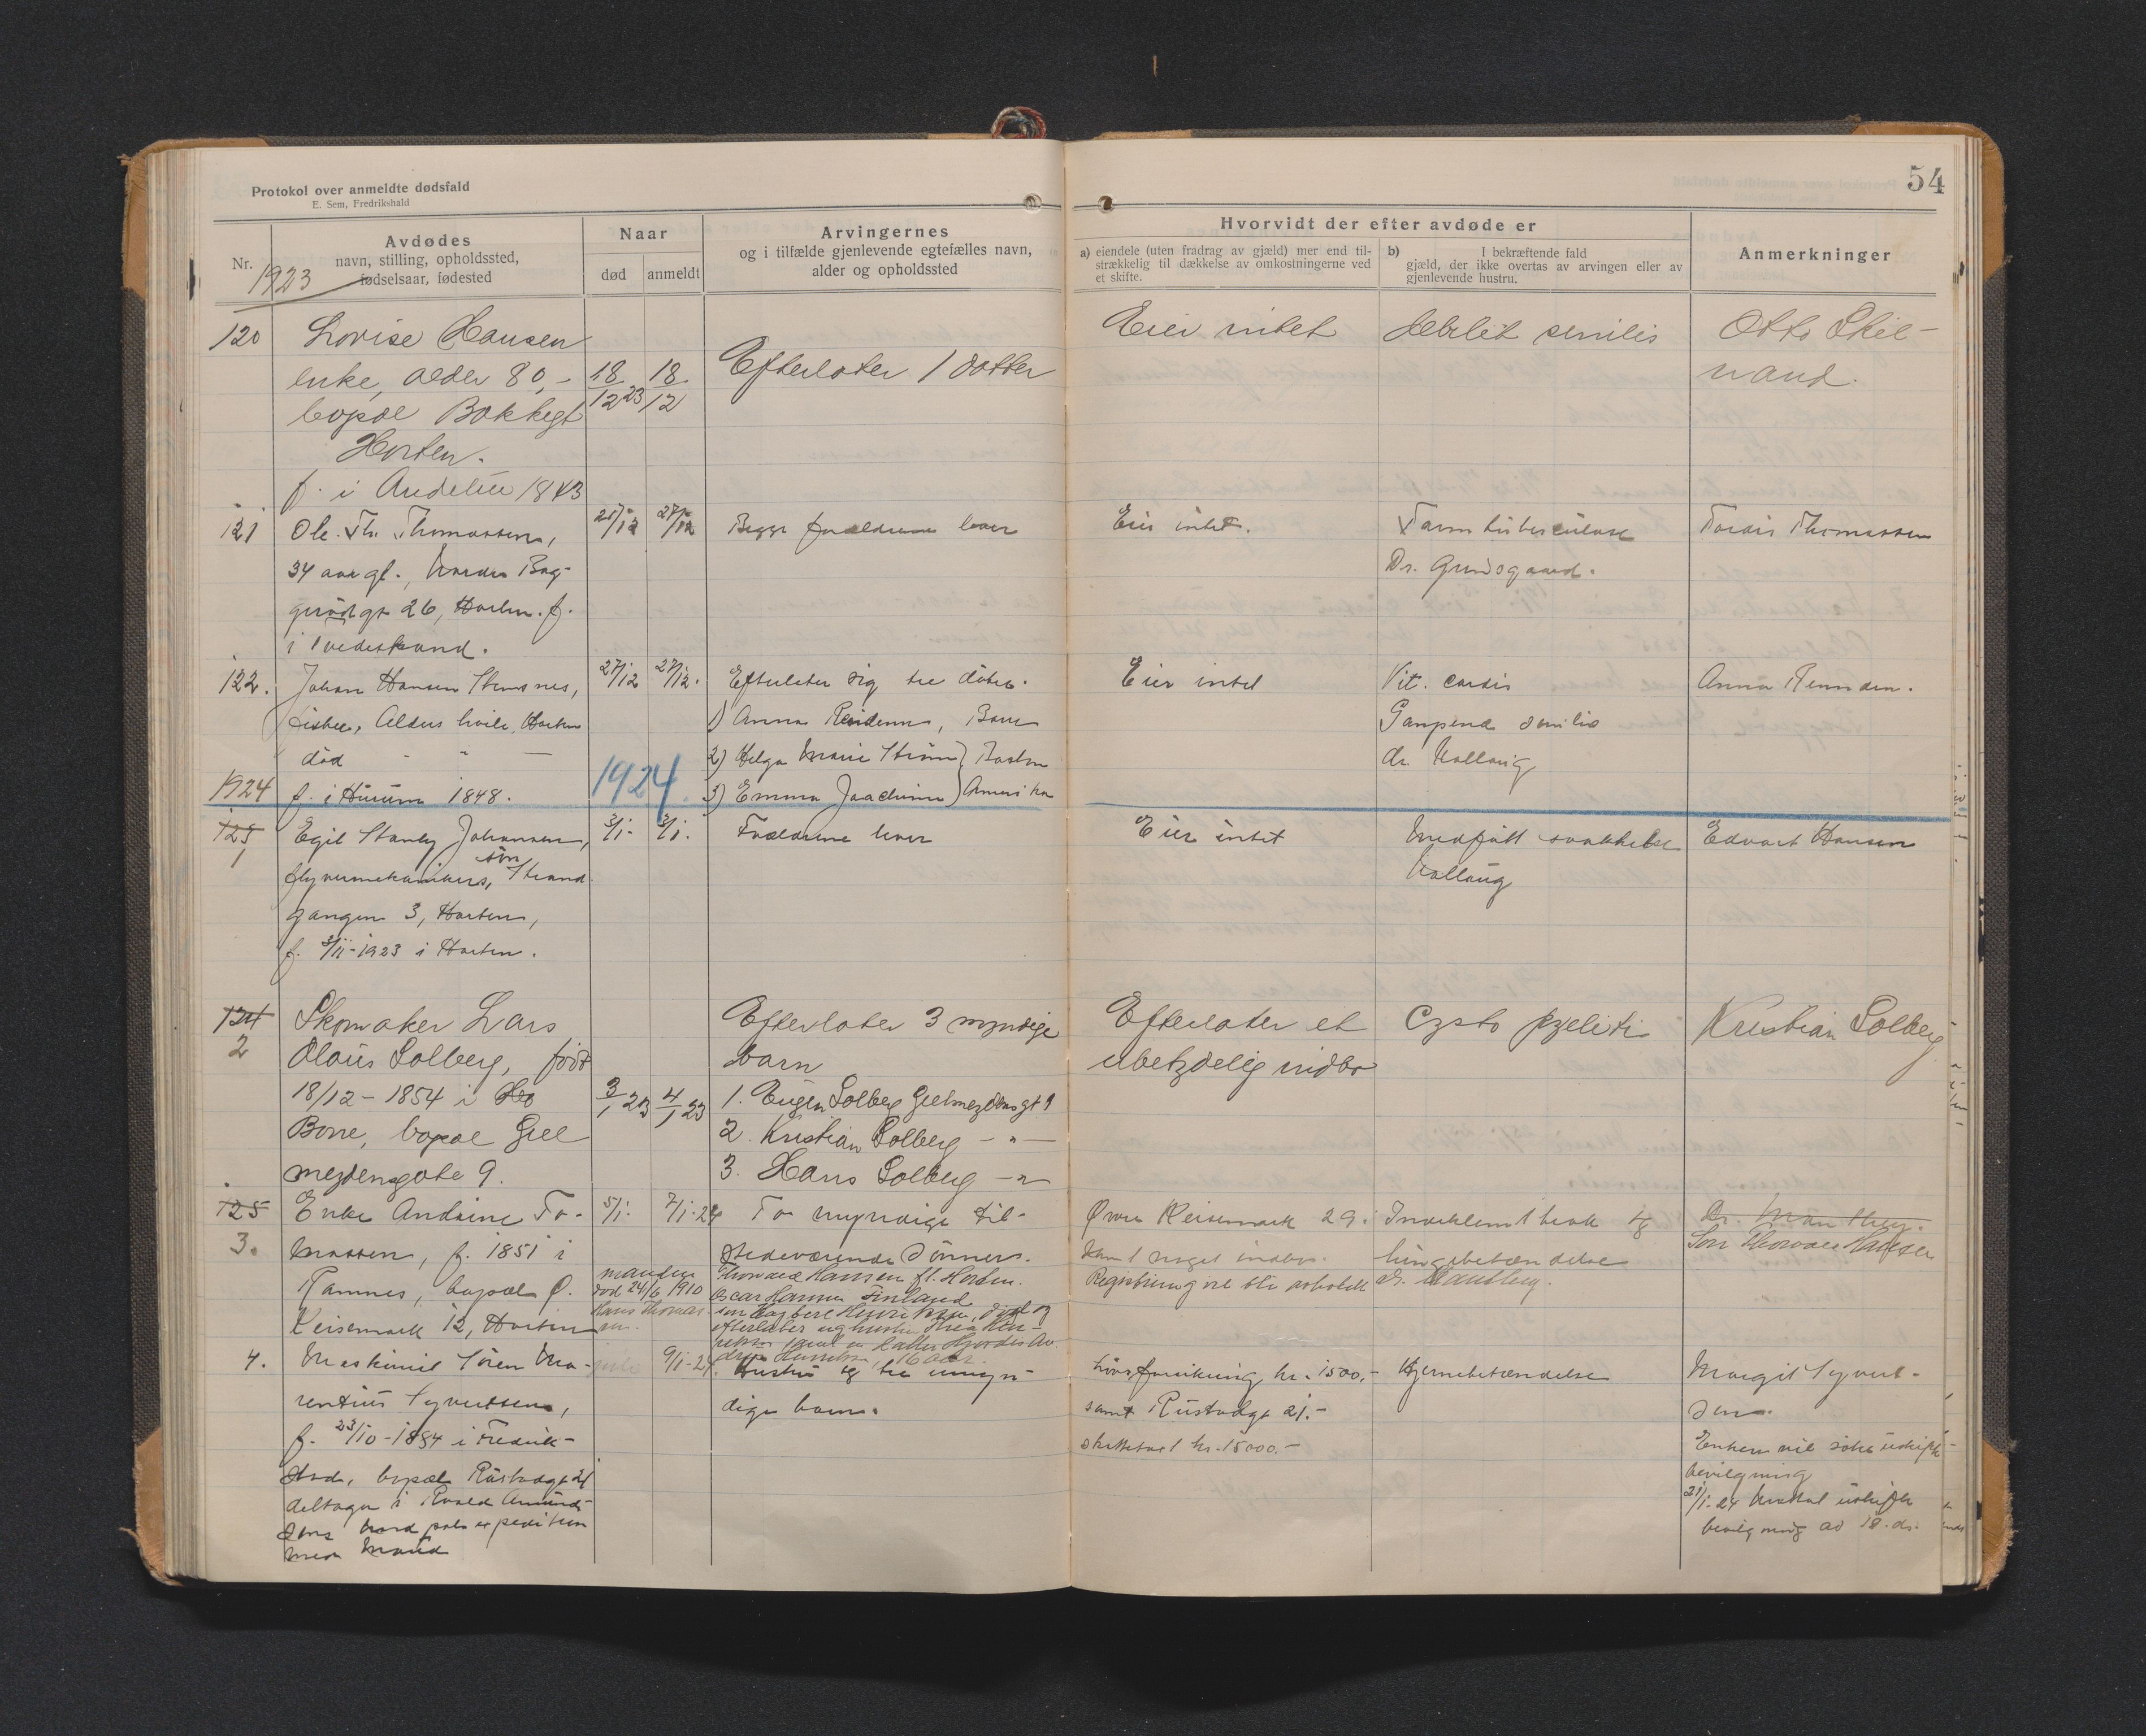 Protokol over anmeldte dødsfald
E. Sem, Fredrikshald
54
Nr.
1923
Avdødes
navn, stilling, opholdssted,
fødselsaar, fødested
Naar
død
anmeldt
Arvingernes
og i tilfælde gjenlevende egtefælles navn,
alder og opholdssted
Hvorvidt der efter avdøde er
a) eiendele (uten fradrag av gjæld) mer end til-
strækkelig til dækkelse av omkostningerne ved
et skifte.
b) I bekræftende fald
gjæld, der ikke overtas av arvingen eller av
gjenlevende hustru.
Anmerkninger
120
Lovise Hansen
enke, alder 80,-
bopæl Bakkegt
Horten.
f. i 1843
18/12 23
18/12
Efterlater 1 datter
Eier intet
debilit senilis
Otto
121
Ole Th. Thomassen,
34 aar gl., Nordre Bag-
gt 26, Horten. f.
i Tvedestrand.
27/12
Begge forældrene lever
Eier intet.
Tarmtuberculose
Dr. Grundsgaard.
Tordis Thomassen
122.
Johan Hansen
fisker, Alders hvile, Horten
død - " -
f. i Hurum 1848.
27/12
27/12.
Efterlater sig tre døtre.
1) Anna Borre
2) Helga Marie Boston
3) Emma Joachim Amerika
Eier intet
Vit. cordis
senilis
dr. Kollaug
Anna
1924
1924
123
1
Egil Stanley Johansen,
flyvermekanikers søn, Strand-
gangen 3, Horten,
f. 3/11-1923 i Horten.
3/1-
3/1.
Forældrene lever
Eier intet
Medfødt svakhelse
Kollaug
Edvart Hansen
124
2
Skomaker Lars
Olaus Solberg, født
18/12-1854 i
Borre, bopæl Gjel
meydensgate 9.
3/1 23
4/1 23
Efterlater 3 myndige
barn
1. Eugen Solberg Gjelmeydensgt 9
2. Kristian Solberg - " -
3. Hans Solberg - " -
Efterlater et
ubetydelig indbo
Cysto pyeliti
Kristian Solberg
125
3.
Enke Andrine To-
massen, f. 1851 i
Ramnes, bopæl Ø.
Keisemark 12, Horten
5/1.
7/1-24
manden
død 24/6 1910
Hans Thomas-
sen.
To myndige til-
stedeværende sønner.
Thorvald Hansen fl. Horten.
Oscar Hansen Finland
Henriksen, død og
efterlater sig hustru
16 aar.
Øvre Keisemark 29.
samt noget indbo.
Registrering vil bli avholdt
Indeklemt brok og
lungebetændelse
dr. Sandberg.
Søn Thorvald Hansen
4.
Maskinist Søren Ma-
rentius Syvertsen,
f. 23/10-1884 i Fredrik-
stad, bopæl Rustadgt 21
deltager i Roald Amund-
sens Nordpolsexpedition
med Maud
9/1-24.
Hustru og tre umyn-
dige barn.
Livsforsikring kr. 1500,-
samt Rustadgt 21.-
skattetakst kr. 15000.-
Hjernebetændelse
Margit Syvert-
sen.
Enken vil søke uskifte-
bevilgning
21/1-24 uskifte
bevilgning av 18. ds.